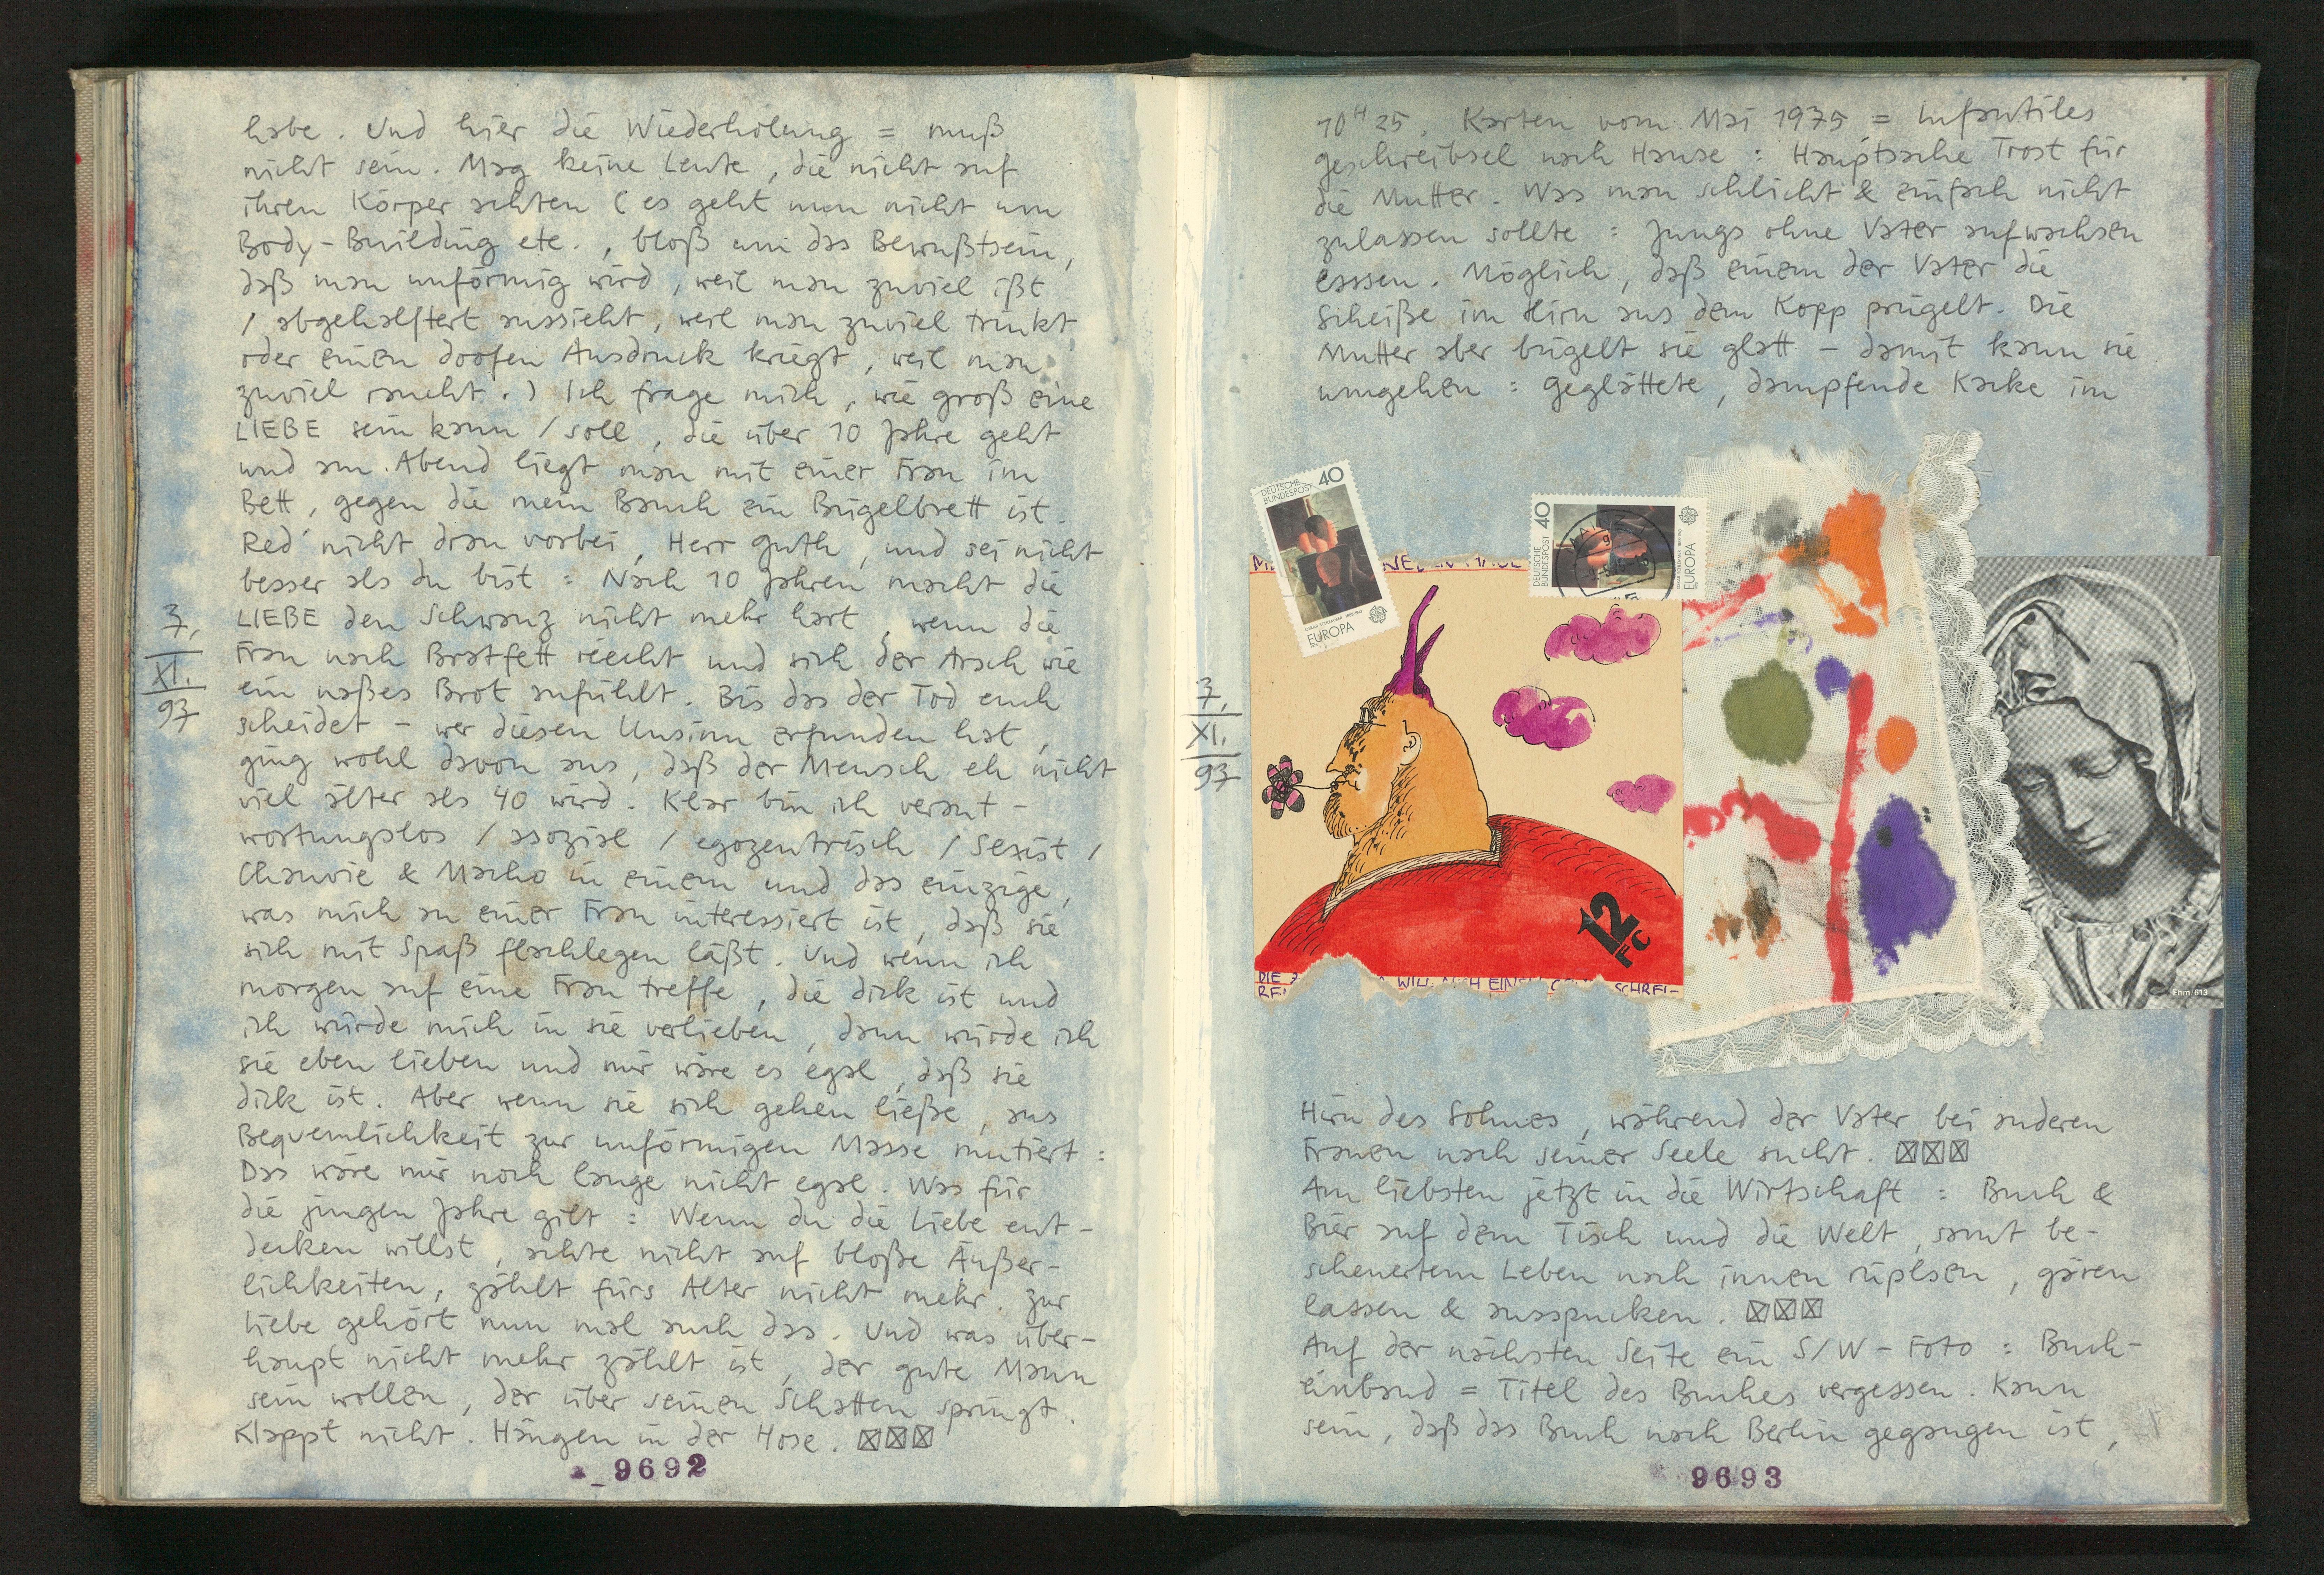 habe. Und hier die Wiederholung = muß
nicht sein. Mag keine Leute, die nicht auf
ihren Körper achten (es geht nun nicht um
Body-Building etc., bloß um das Bewußtsein,
daß man unförmig wird, weil man zuviel ißt
/ abgehalftert aussieht, weil man zuviel trinkt
oder einen doofen Ausdruck kriegt, weil man
zuviel raucht.) Ich frage mich, wie groß eine
LIEBE sein kann / soll, die über 10 Jahre geht
und am Abend liegt man mit einer Frau im
Bett, gegen die mein Bauch ein Bügelbrett ist.
Red' nicht dran vorbei, Herr Guth, und sei nicht
besser als du bist: Nach 10 Jahren macht die
LIEBE den Schwanz nicht mehr hart, wenn die
Frau nach Bratfett riecht und sich der Arsch wie
ein naßes Brot anfühlt. Bis das der Tod euch
scheidet - wer diesen Unsinn erfunden hat,
ging wohl davon aus, daß der Mensch eh nicht
viel älter als 40 wird. Klar bin ich verant-
wortungslos / asozial / egozentrisch / Sexist /
Chauvie & Macho in einem und das einzige,
was mich an einer Frau interessiert ist, daß sie
sich mit Spaß flachlegen läßt. Und wenn ich
morgen auf eine Frau treffe, die dick ist und
ich würde mich in sie verlieben, dann würde ich
sie eben lieben und mir wäre es egal, daß sie
dick ist. Aber wenn sie sich gehen ließe, aus
Bequemlichkeit zur unförmigen Masse mutiert:
Das wäre mir noch lange nicht egal. Was für
die jungen Jahre gilt: Wenn du die Liebe ent-
decken willst, achte nicht auf bloße Äußer-
lichkeiten, zählt fürs Alter nicht mehr. Zur
Liebe gehört nun mal auch das. Und was über-
haupt nicht mehr zählt ist, der gute Mann
sein wollen, der über seinen Schatten springt.
Klappt nicht. Hängen in der Hose. ☒☒☒
7.
XI.
93
9692
10H25. Karten vom Mai 1975 = Infantiles
Geschreibsel nach Hause: Hauptsache Trost für
die Mutter. Was man schlicht & einfach nicht
zulassen sollte: Jungs ohne Vater aufwachsen
lasssen. Möglich, daß einem der Vater die
Scheiße im Hirn aus dem Kopp prügelt. Die
Mutter aber bügelt sie glatt - damit kann sie
umgehen: Geglättete, dampfende Kacke im
DEUTSCHE
BUNDESPOST 40
EUROPA
DEUTSCHE
BUNDESPOST 40
EUROPA
7.
XI.
93
12
FC
DIE
WILL
SCHREI-
Ehm/613
Hirn des Sohnes, während der Vater bei anderen
Frauen nach seiner Seele sucht. ☒☒☒
Am liebsten jetzt in die Wirtschaft: Buch &
Bier auf dem Tisch und die Welt, samt be-
scheuertem Leben nach innen rülpsen, gären
lassen & ausspucken. ☒☒☒
Auf der nächsten Seite ein S/W-Foto: Buch-
einband = Titel des Buches vergessen. Kann
sein, daß das Buch nach Berlin gegangen ist,
9693